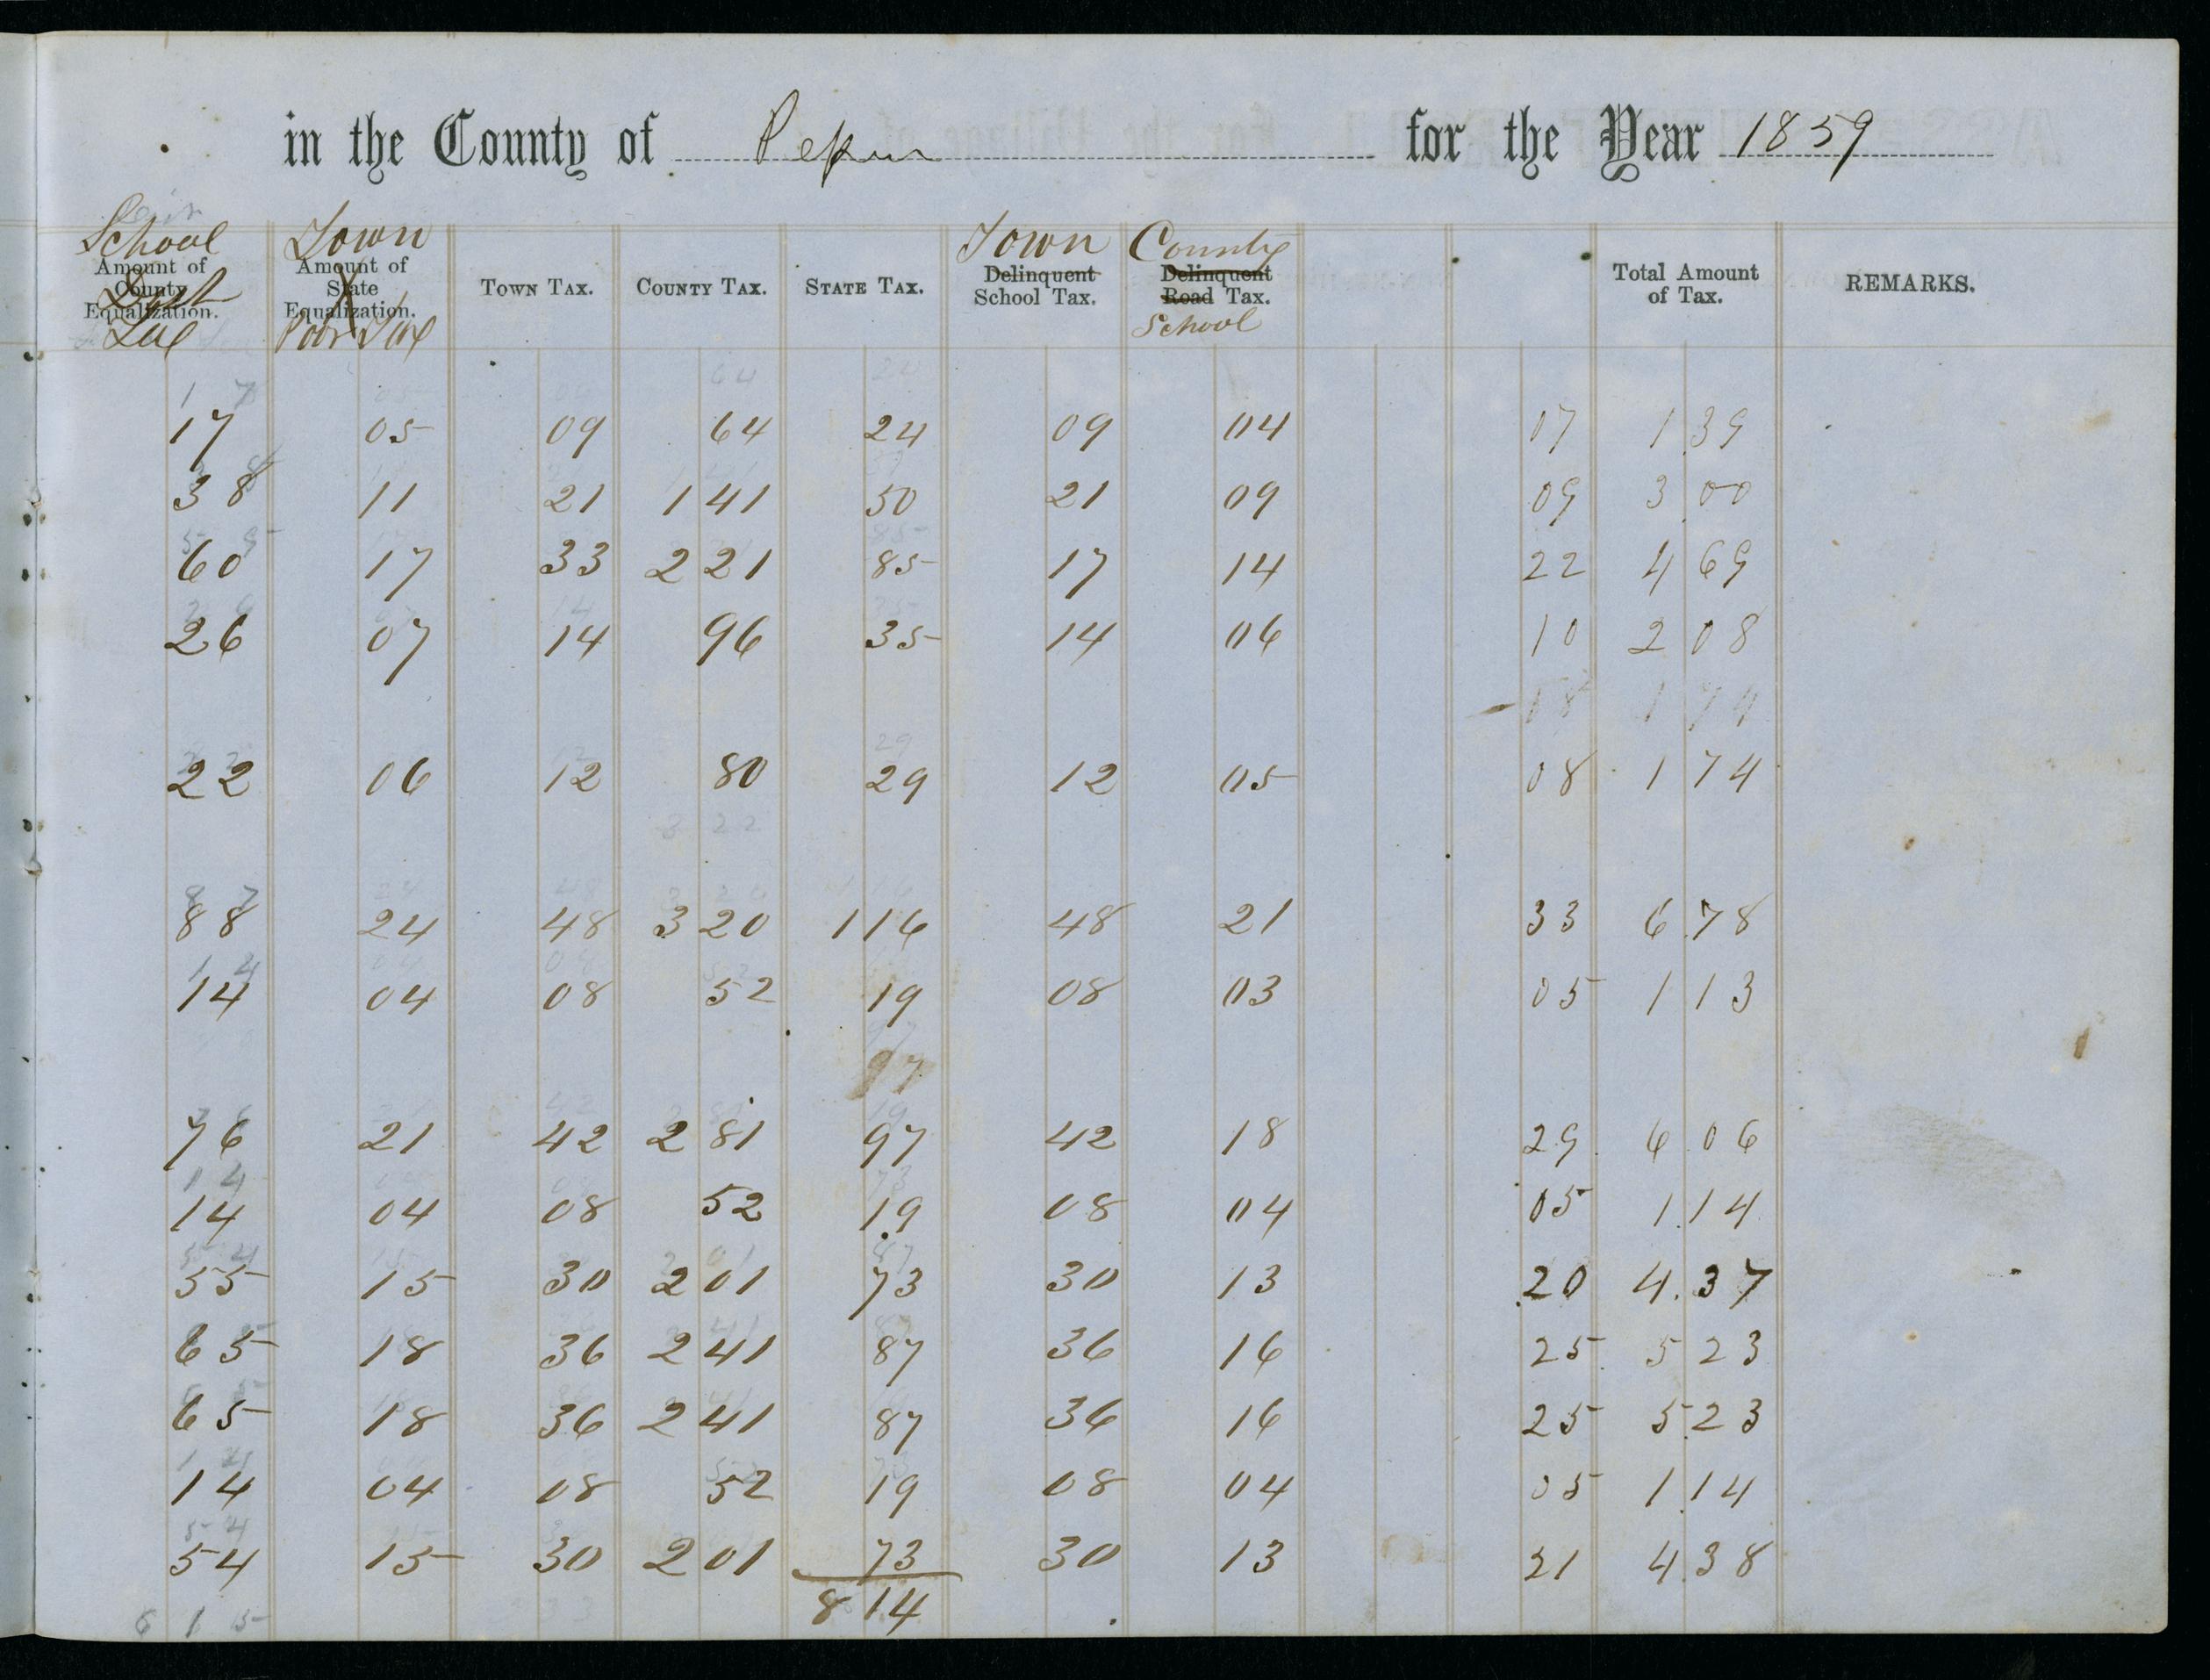 in the County of Pepin for the Year 1859
School Town Town County
Amount of County Equalization. Amount of State Equalization. TOWN TAX. COUNTY TAX. STATE TAX. Delinquent School Tax. Delinquent Road Tax. Total Amount of Tax. REMARKS.
Poor Tax School
17 05 09 64 24 09 04 07 1 39
38 11 21 1 41 50 21 09 09 3 00
60 17 33 2 21 85 17 14 22 4 69
26 07 14 96 35 14 06 10 2 08
22 06 12 80 29 12 05 08 1 74
3 22
88 24 48 3 20 1 16 48 21 33 6 78
14 04 08 52 19 08 03 05 1 13
97
76 21 42 2 81 97 42 18 29 6 06
14 04 08 52 19 08 04 05 1 14
55 15 30 2 01 73 30 13 20 4.37
65 18 36 2 41 87 36 16 25 5 23
65 18 36 2 41 87 36 16 25 5 23
14 04 08 52 19 08 04 05 1 14
54 15 30 2 01 73 30 13 21 4 38
8 14
6 15